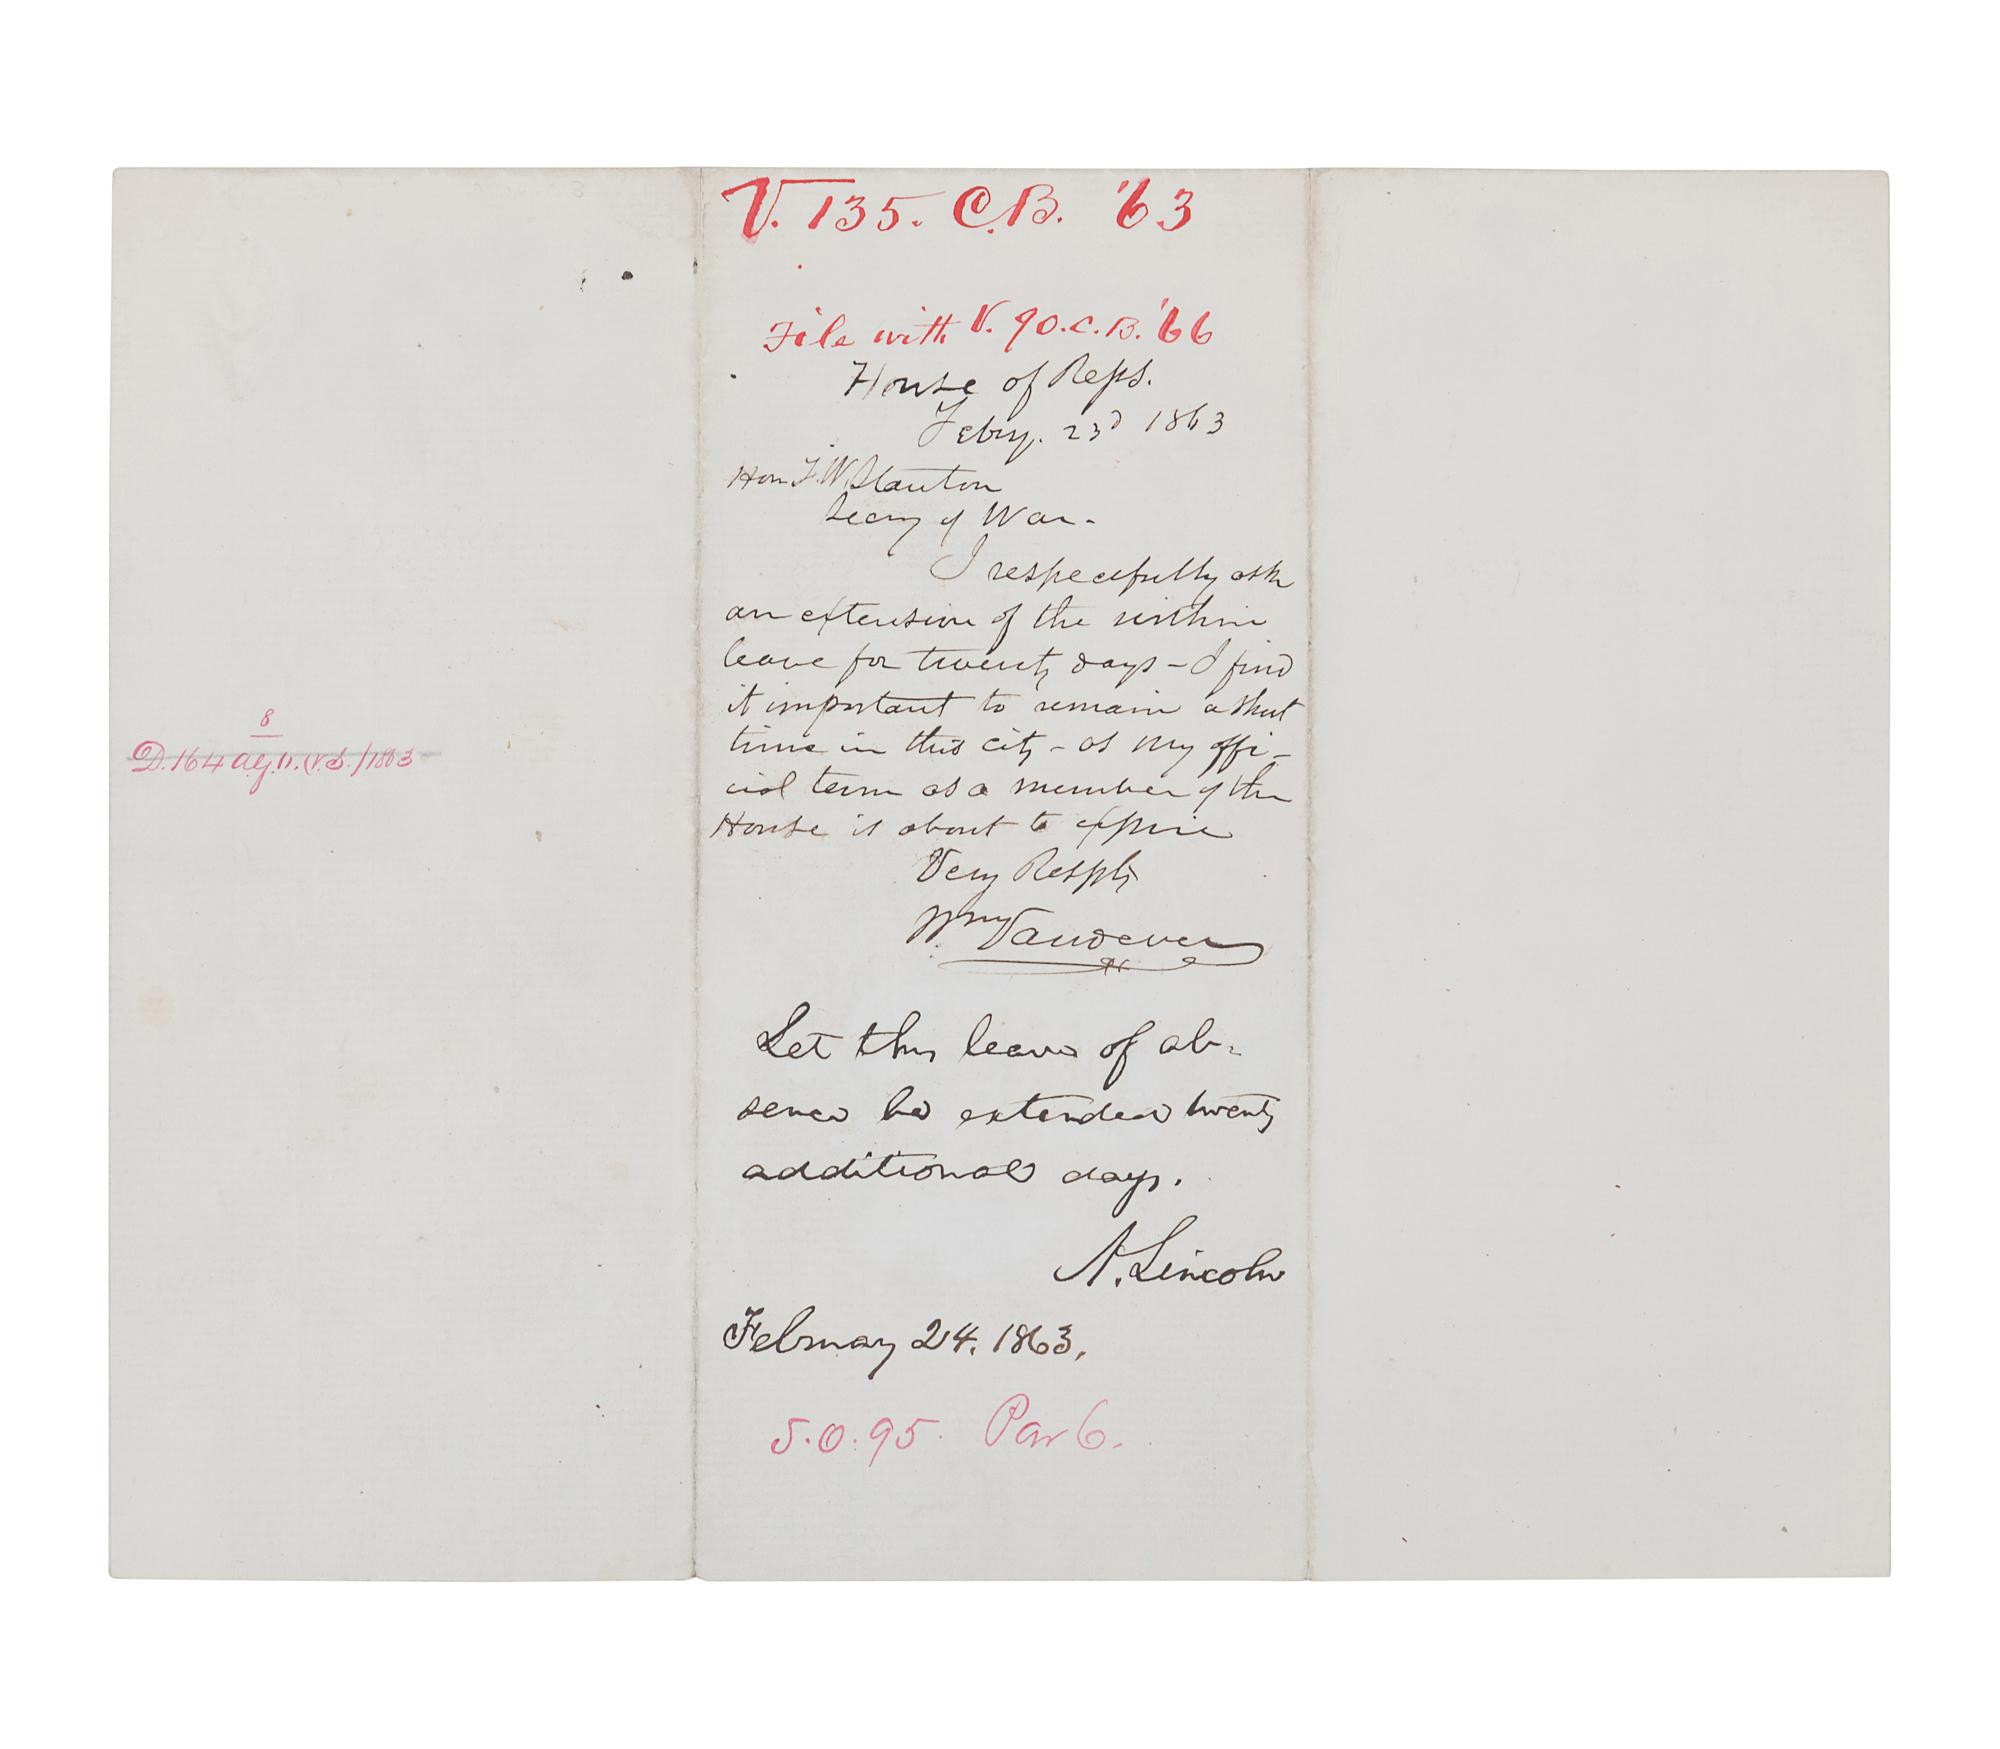 V. 135. C.B. '63
File with V. 90. C.B. '66
House of Reps.
Feby. 23d 1863
Hon E. W. Stanton
Secy of War -
I respectfully ask
an extension of the within
leave for twenty days - I find
it important to remain a short
time in this city - as my offi-
cial term as a member of the
House is about to expire
Very Resptly
Wm Vandever
Let this leave of ab-
sence be extended twenty
additional days.
A. Lincoln
February 24. 1863.
S.O. 95. Par 6.
8
D. 164 1863